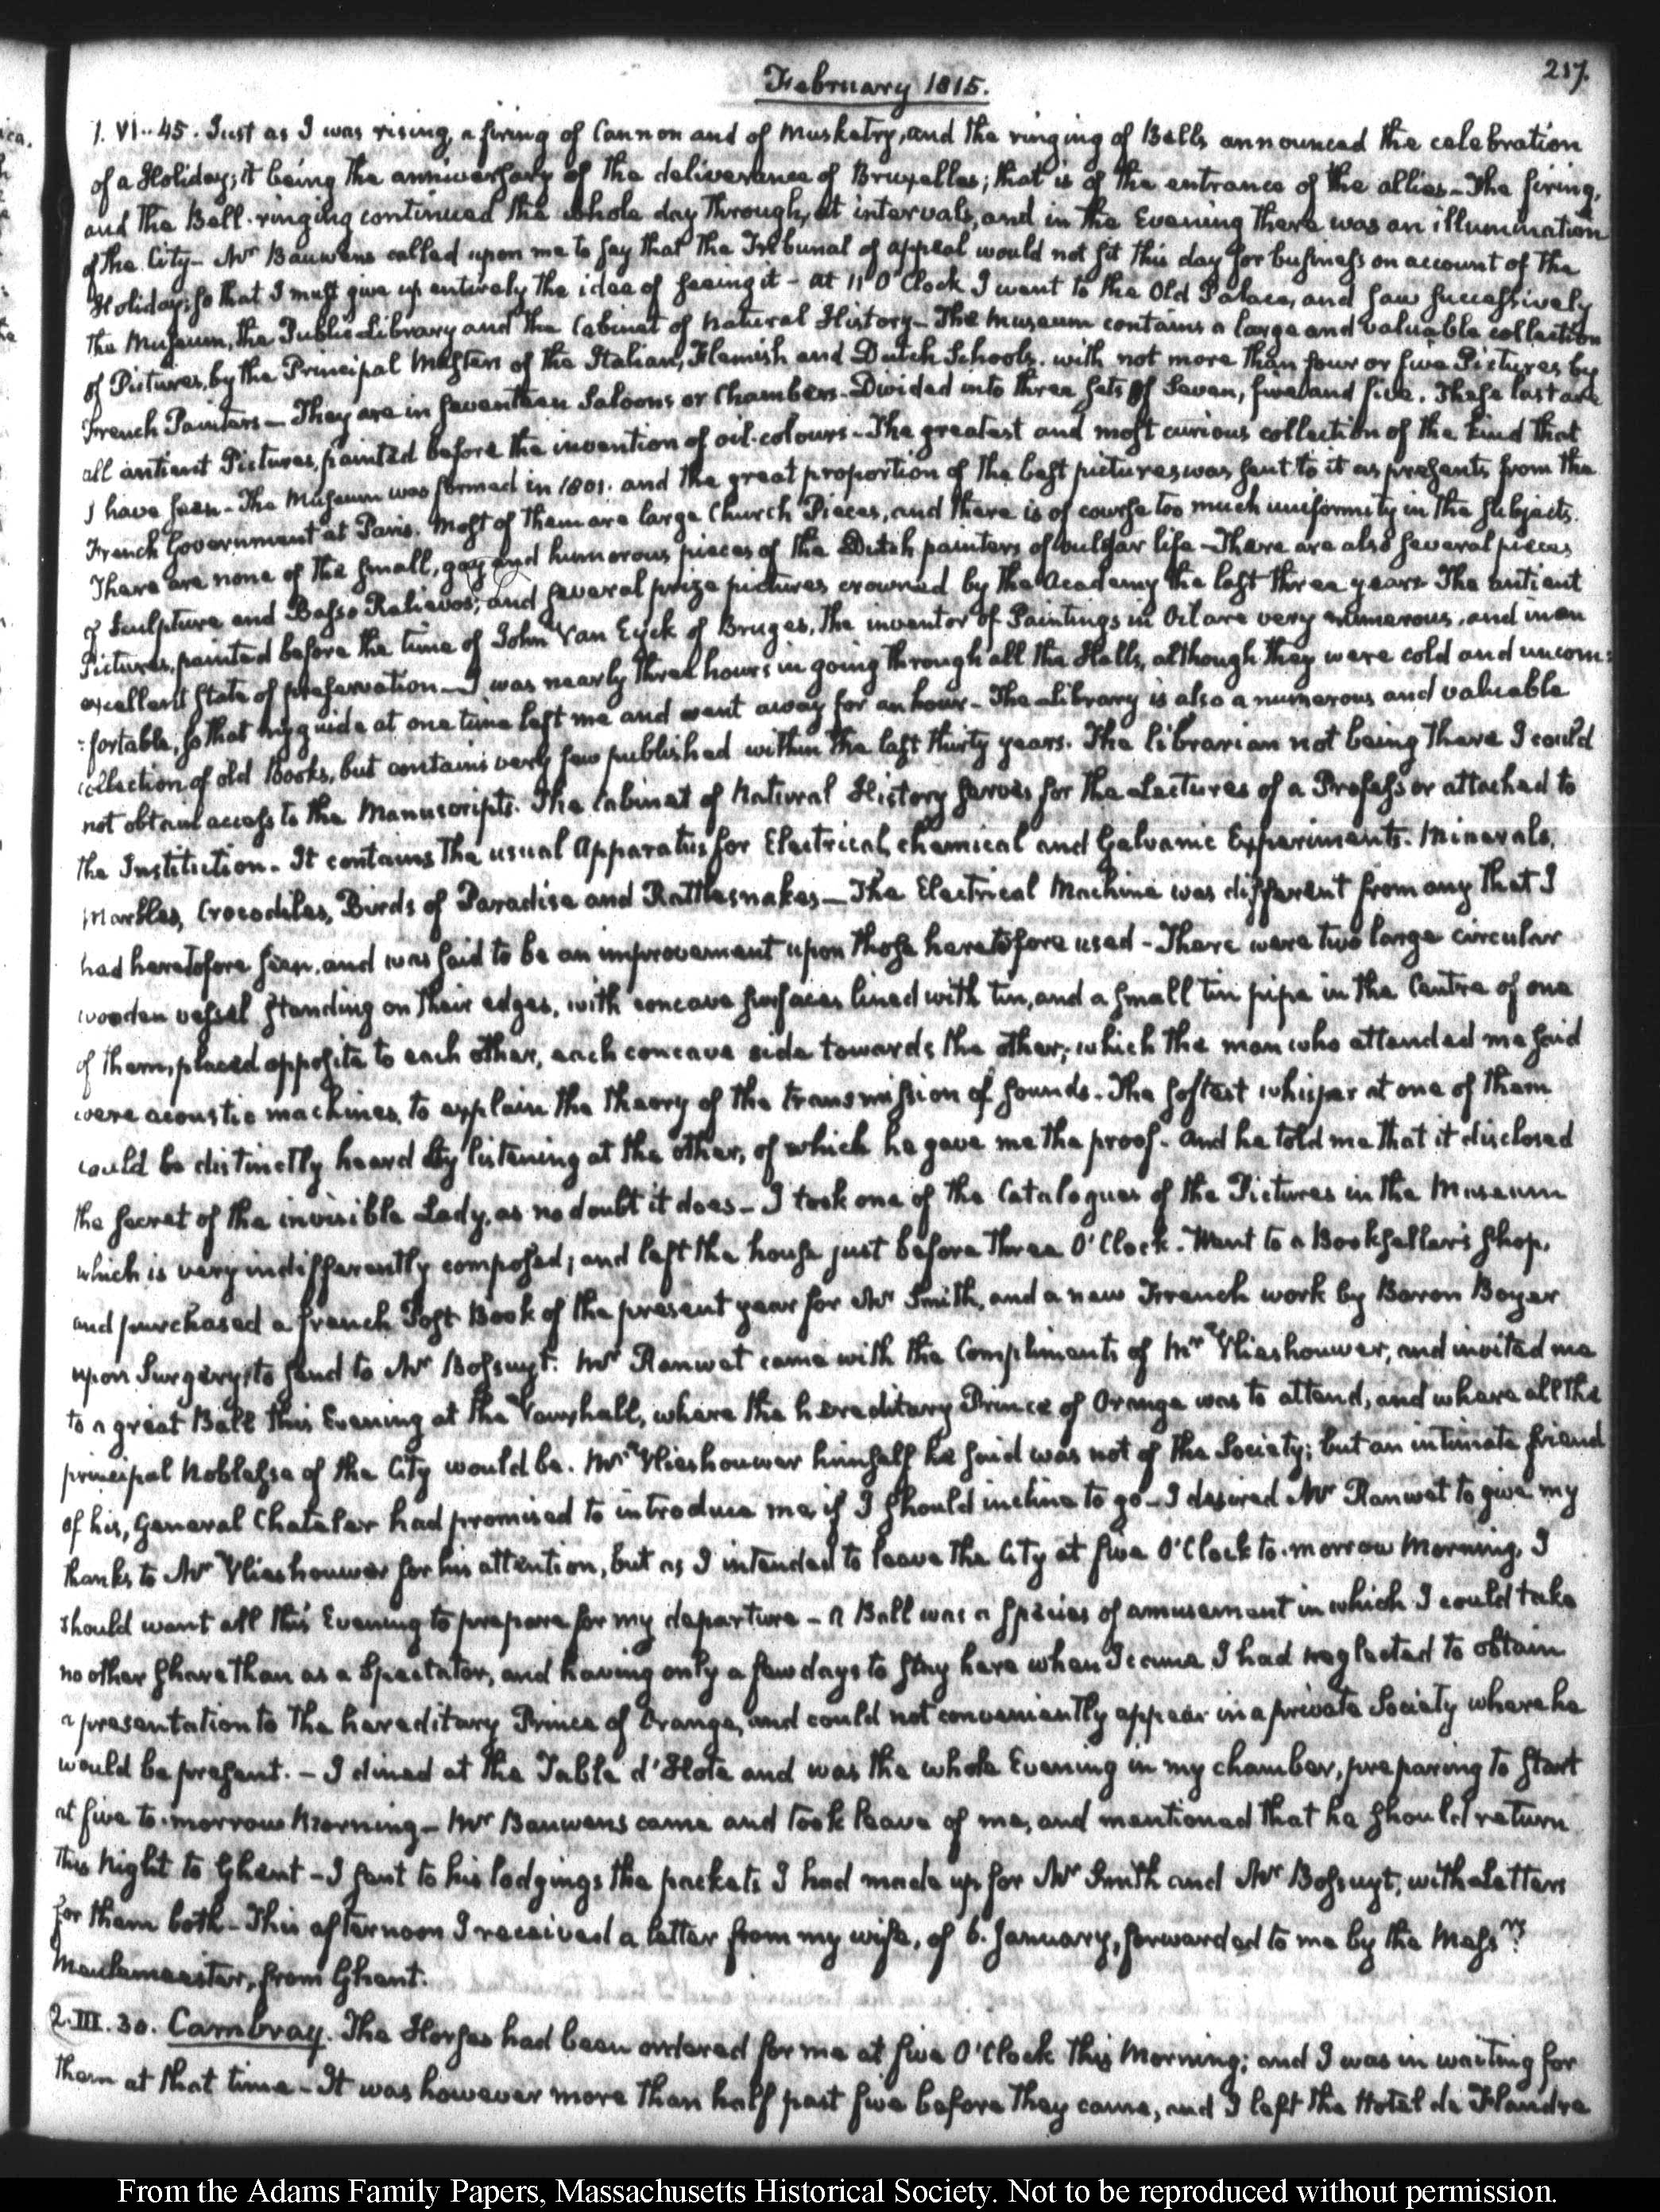 217.
February 1815.
1. VI..45. Just as I was rising, a firing of Cannon and of Musketry, and the ringing of Bells announced the celebration
of a Holiday; it being the anniversary of the deliverance of Bruxelles; that is of the entrance of the allies_ The firing,
and the Bell-ringing continued the whole day through, at intervals, and in the Evening there was an illumination
of the City_ Mr Bauwens called upon me to say that the Tribunal of appeal would not sit this day for business on account of the
Holiday; so that I must give up entirely the idea of seeing it - at 11 O'Clock I went to the Old Palace, and saw successively
the Museum, the Public Library and the Cabinet of Natural History_ The Museum contains a large and valuable collection
of Pictures, by the Principal Masters of the Italian, Flemish and Dutch Schools. with not more than four or five Pictures by
French Painters_ They are in seventeen Saloons or Chambers_ Divided into three sets of Seven, five and five. These last are
all antient Pictures, painted before the invention of oil-colours_ The greatest and most curious collection of the kind that
I have seen_ The Museum was formed in 1801. and the great proportion of the best pictures was sent to it as presents from the
French Government at Paris. Most of them are large Church Pieces, and there is of course too much uniformity in the subjects.
There are none of the small, gay and humorous pieces of the Dutch painters of vulgar life_ There are also several pieces
of Sculpture and Basso Relievos; and several prize pictures crowned by the Academy the last three years. The antient
Pictures, painted before the time of John Van Eyck of Bruges, the inventor of Paintings in Oil are very numerous, and in an
excellent state of preservation_ I was nearly three hours in going through all the Halls, although they were cold and uncom:
:fortable, so that my guide at one time left me and went away for an hour_ The Library is also a numerous and valuable
collection of old Books, but contains very few published within the last thirty years. The librarian not being there I could
not obtain access to the Manuscripts. The Cabinet of Natural History serves for the Lectures of a Professor attached to
the Institution_ It contains the usual Apparatus for Electrical, chemical and Galvanic Experiments. Minerals,
Marbles, Crocodiles, Birds of Paradise and Rattlesnakes_ The Electrical Machine was different from any that I
had heretofore seen, and was said to be an improvement upon those heretofore used - There were two large circular
wooden vessel standing on their edges, with concave surfaces lined with tin, and a small tin pipe in the Centre of one
of them, placed opposite to each other, each concave side towards the other, which the man who attended me said
were acoustic machines, to explain the theory of the transmission of sounds_ The softest whisper at one of them
could be distinctly heard by listening at the other, of which he gave me the proof. and he told me that it disclosed
the secret of the invisible Lady, as no doubt it does_ I took one of the Catalogues of the Pictures in the Museum
which is very indifferently composed; and left the house just before three O'Clock. Went to a Bookseller's shop,
and purchased a french Post-Book of the present year for Mr Smith, and a new French work by Baron Boyer
upon Surgery, to send to Mr Bossuyt. Mr Ranwet came with the Compliments of Mr Vlieshouwer, and invited me
to a great Ball this Evening at the Vauxhall, where the hereditary Prince of Orange was to attend, and where all the
principal Noblesse of the City would be. Mr Vlieshouwer himself he said was not of the Society; but an intimate friend
of his, General Chateler had promised to introduce me, if I should incline to go_ I desired Mr Ranwet to give my
thanks to Mr Vlieshouwer for his attention, but as I intended to leave the City at five O'Clock to-morrow Morning, I
should want all this Evening to prepare for my departure - A Ball was a species of amusement in which I could take
no other share than as a Spectator, and having only a few days to stay here when I came I had neglected to obtain
a presentation to the hereditary Prince of Orange, and could not conveniently appear in a private Society where he
would be present. - I dined at the Table d'Hote and was the whole Evening in my chamber, preparing to start
at five to-morrow Morning_ Mr Bauwens came and took leave of me, and mentioned that he should return
this Night to Ghent - I sent to his lodgings the packets I had made up for Mr Smith and Mr Bossuyt, with Letters
for them both_ This afternoon I received a letter from my wife, of 6. January, forwarded to me by the Messrs
Meulemeester, from Ghent.
2. III. 30. Cambray. The Horses had been ordered for me at five O'Clock this Morning; and I was in waiting for
them at that time - It was however more than half past five before they came, and I left the Hotel de Flandre
From the Adams Family Papers, Massachusetts Historical Society. Not to be reproduced without permission.